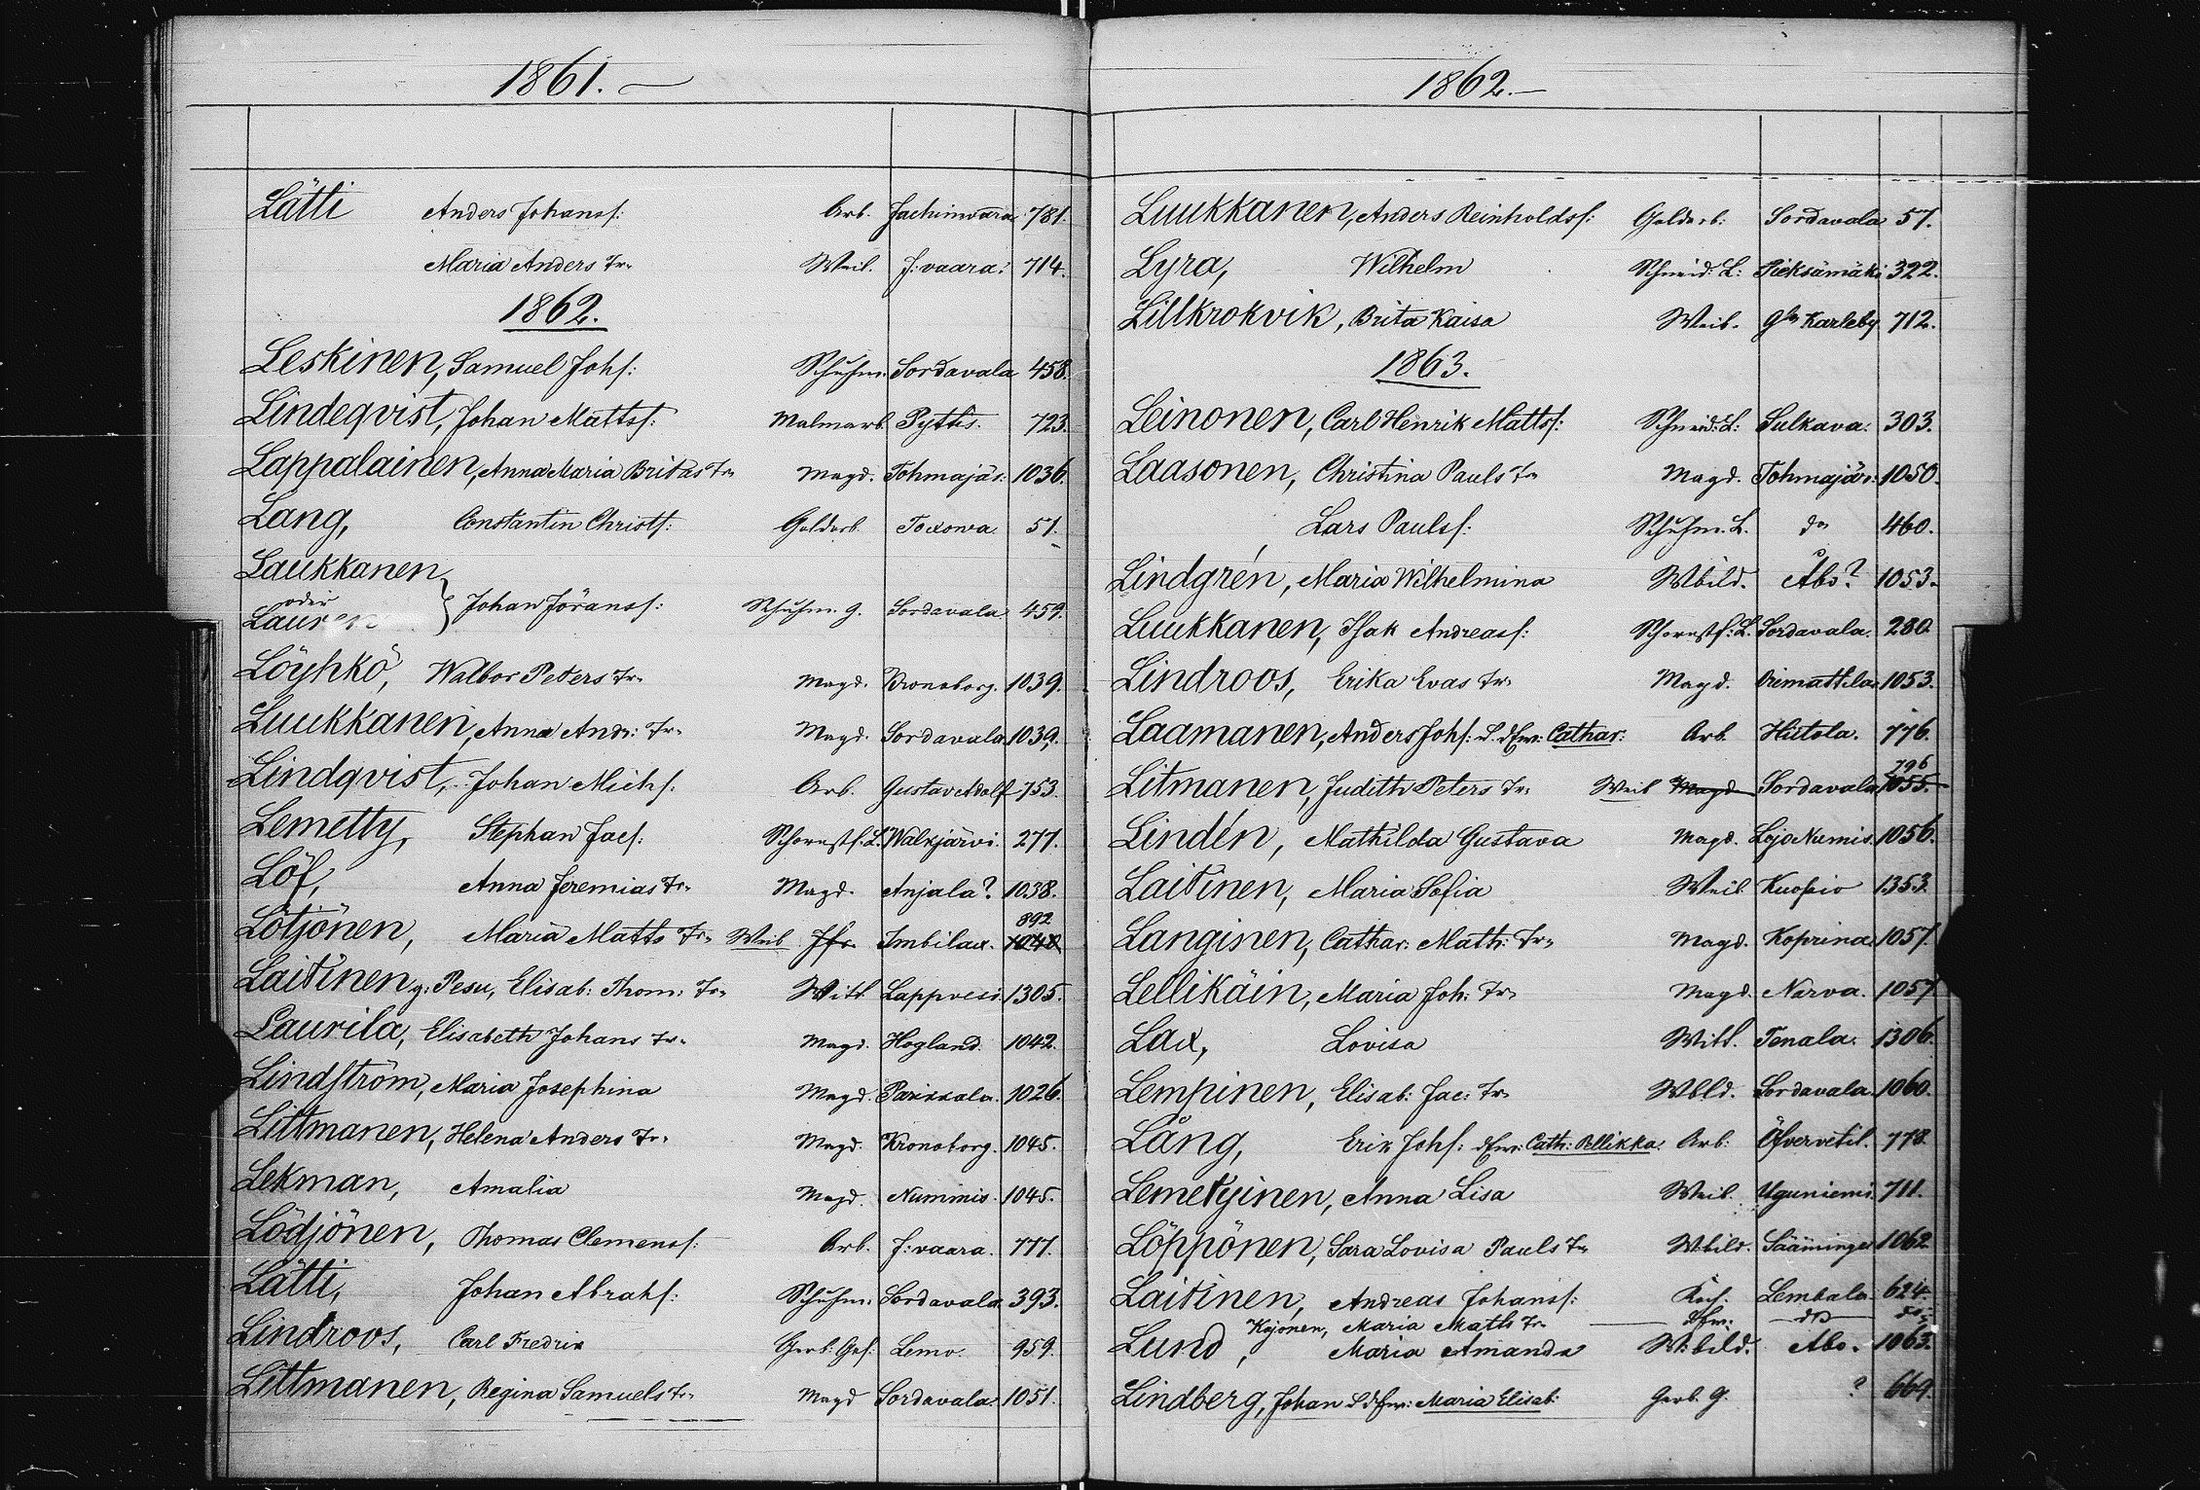 1861.
Lätti Anders Johansf: Arb. Jachimvara 781.
Maria Anders Tr. Weib. J:vaara: 714.
1862.
Leskinen, Samuel Johf: Schuhm. Sordavala 458.
Lindeqvist, Johan Mattsf: Malmarb. Pyttis. 723.
Lappalainen, Anna Maria Britas Tr. Magd. Tohmajär: 1036.
Lang, Constantin Christf: Goldarb. Toxowa. 51.
Laukkanen
oder
Lauren } Johan Göransf: Schuhm. G. Sordavala 459.
Löyhkö, Walbor Peters Tr. Magd. Kronoborg. 1039.
Luukkanen, Anna Andr: Tr. Magd. Sordavala. 1039.
Lindqvist, Johan Michf. Arb. Gustav Adolf 753.
Lemetty, Stephan Jacf: Schornstf. L. Walkjärvi. 277.
Löf, Anna Jeremias Tr. Magd. Anjala? 1038.
892
Lötjönen, Maria Matts Tr. Weib Jfr Imbilax.
Laitinen g: Pesu, Elisab: Thom: Tr. Witt. Lappvesi 1305.
Laurila, Elisabeth Johans Tr. Magd. Hogland. 1042.
Lindström, Maria Josephina Magd. Parikkala. 1026.
Littmanen, Helena Anders Tr. Magd. Kronoborg. 1045.
Lekman, Amalia Magd. Nummis. 1045.
Lödjönen, Thomas Clemensf: Arb. J:vaara. 777.
Lätti, Johan Abrahf: Schuhm: Sordavala. 393.
Lindroos, Carl Fredrik Gerb: Gef: Lemo. 959.
Littmanen, Regina Samuels Tr. Magd Sordavala. 1051.
1862.
Luukkanen, Anders Reinholdsf: Goldarb: Sordavala 57.
Lyra, Wilhelm Schneid: L: Pieksämäki 322.
Lillkrokvik, Brita Kaisa Weib. Gla Karleby 712.
1863.
Leinonen, Carl Henrik Mattsf: Schneid: L: Sulkava: 303.
Laasonen, Christina Pauls Tr Magd. Tohmajär: 1050.
Lars Paulsf: Schuhm. L. do 460.
Lindgrén, Maria Wilhelmina Wbild. Åbo? 1053.
Luukkanen, Isak Andreasf: Schornstf: L. Sordavala. 280
Lindroos, Erika Evas Tr. Magd. Orimattila. 1053.
Laamanen, Anders Johf: u. dfw: Cathar: Arb. Hiitola. 776.
796
Litmanen, Judith Peters Tr. Weib Magd Sordavala 1055.
Lindén, Mathilda Gustava Magd. Lojo Numis. 1056.
Laitinen, Maria Sofia Weib Kuopio 1353.
Langinen, Cathar: Math: Tr. Magd. Koprina. 1057.
Lellikäin, Maria Joh: Tr. Magd. Narva. 1057.
Lax, Lovisa Witt. Tenala. 1306.
Lempinen, Elisab: Jac: Tr. Wbld. Sordavala. 1060.
Lång, Erik Johf: dfw: Cath: Pellikka. Arb: Öfvervetil. 778.
Lemetyinen, Anna Lisa Weib. Uguniemi. 711.
Löppönen, Sara Lovisa Pauls Tr Wbild. Sääminge 1062
Laitinen, Andreas Johansf: Lembala. 624.
Kojonen, Maria Matts Tr. dfw: do do:
Lund, Maria Amanda Wbild. Abo. 1063.
Lindberg, Johan u dfw: Maria Elisab: Gerb. G. ? 669.